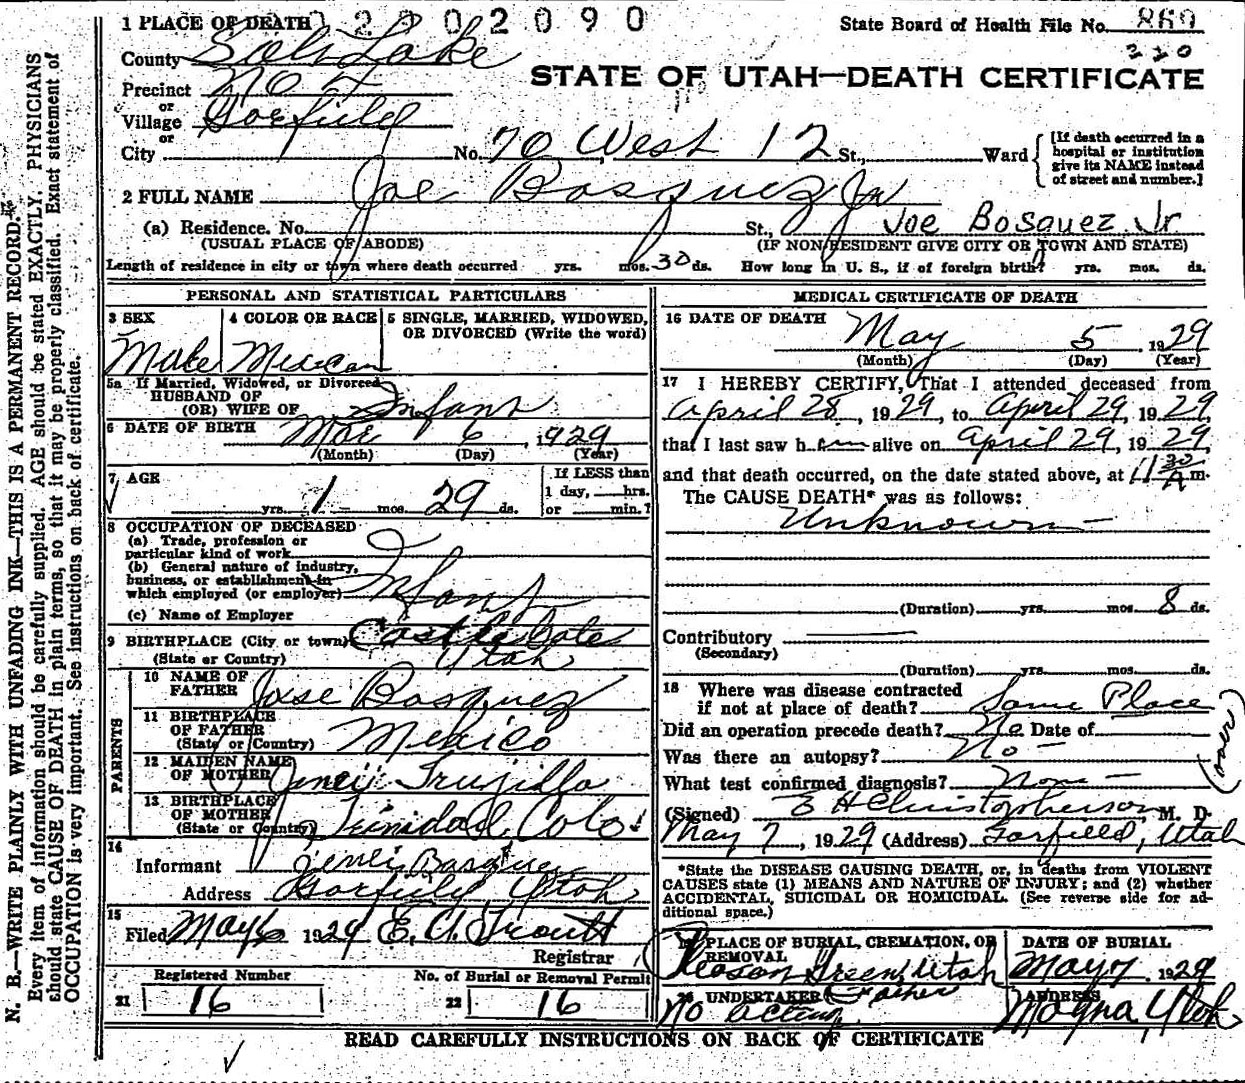 1 PLACE OF DEATH 0 2 9 0 2 0 9 0
State Board of Health File No. 869
County Salt Lake
330
Precinct No 7
STATE OF UTAH—DEATH CERTIFICATE
or
Village Garfield
or
City No. 70 West 12 St., Ward
[If death occurred in a hospital or institution give its NAME instead of street and number.]
2 FULL NAME Joe Bosquez Jr
(a) Residence. No. St., Joe Bosquez Jr.
(USUAL PLACE OF ABODE) (IF NON RESIDENT GIVE CITY OR TOWN AND STATE)
Length of residence in city or town where death occurred yrs. mos. 30 ds. How long in U. S., if of foreign birth? yrs. mos. ds.
PERSONAL AND STATISTICAL PARTICULARS
3 SEX 4 COLOR OR RACE 5 SINGLE, MARRIED, WIDOWED,
OR DIVORCED (Write the word)
Male Mexican
5a If Married, Widowed, or Divorced
HUSBAND OF
(OR) WIFE OF Infant
6 DATE OF BIRTH Mar 6, 1929
(Month) (Day) (Year)
7 AGE If LESS than
1 day, hrs.
yrs. 1 mos. 29 ds. or min.?
8 OCCUPATION OF DECEASED
(a) Trade, profession or
particular kind of work
(b) General nature of industry,
business, or establishment in
which employed (or employer) Infant
(c) Name of Employer
9 BIRTHPLACE (City or town) Castle Gate
(State or Country) Utah
PARENTS
10 NAME OF
FATHER Jose Bosquez
11 BIRTHPLACE
OF FATHER
(State or Country) Mexico
12 MAIDEN NAME
OF MOTHER Trujillo
13 BIRTHPLACE
OF MOTHER
(State or Country) Trinidad, Colo.
14
Informant Bosquez
Address Garfield, Utah
15
Filed May 6 1929 E. A. Troutt
Registrar
Registered Number No. of Burial or Removal Permit
21 16 22 16
MEDICAL CERTIFICATE OF DEATH
16 DATE OF DEATH
May 5, 1929
(Month) (Day) (Year)
17 I HEREBY CERTIFY, That I attended deceased from
April 28, 1929, to April 29, 1929,
that I last saw him alive on April 29, 1929
and that death occurred, on the date stated above, at 11 30 A m.
The CAUSE DEATH* was as follows:
Unknown
(Duration) yrs. mos. 8 ds.
Contributory
(Secondary)
(Duration) yrs. mos. ds.
18 Where was disease contracted
if not at place of death? Same Place
Did an operation precede death? No Date of
Was there an autopsy? No
(over)
What test confirmed diagnosis? None
(Signed) E H Christopherson, M. D.
May 7, 1929 (Address) Garfield, Utah
*State the DISEASE CAUSING DEATH, or, in deaths from VIOLENT
CAUSES state (1) MEANS AND NATURE OF INJURY; and (2) whether
ACCIDENTAL, SUICIDAL OR HOMICIDAL. (See reverse side for ad-
ditional space.)
19 PLACE OF BURIAL, CREMATION, OR
REMOVAL DATE OF BURIAL
Pleason Green, Utah May 7 1929
20 UNDERTAKER Father ADDRESS
No acting Magna, Utah
READ CAREFULLY INSTRUCTIONS ON BACK OF CERTIFICATE
N. B.—WRITE PLAINLY WITH UNFADING INK—THIS IS A PERMANENT RECORD.
Every item of information should be carefully supplied. AGE should be stated EXACTLY. PHYSICIANS
should state CAUSE OF DEATH in plain terms, so that it may be properly classified. Exact statement of
OCCUPATION is very important. See instructions on back of certificate.